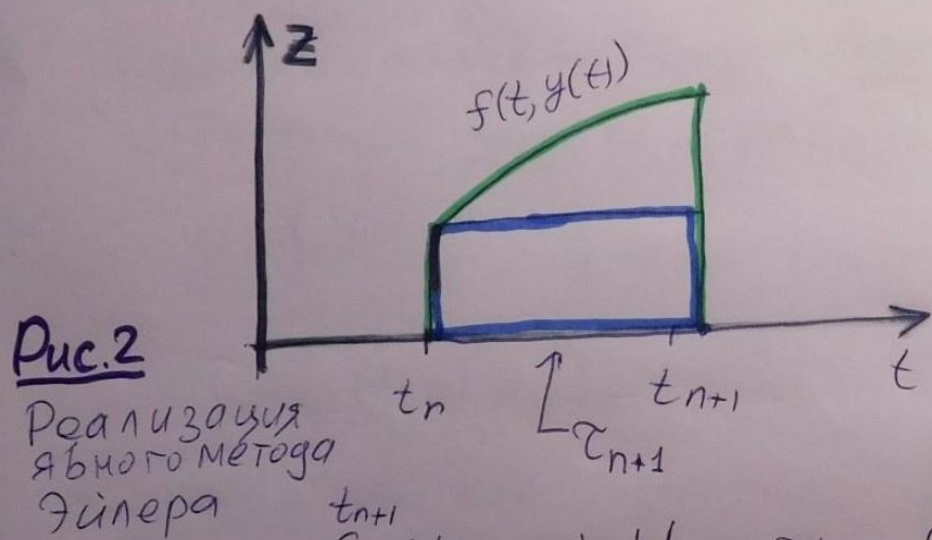 z
f(t, y(t))
Рис.2
t
tₙ
tₙ₊₁
τₙ₊₁
Реализация
явного метода
Эйлера
tₙ₊₁